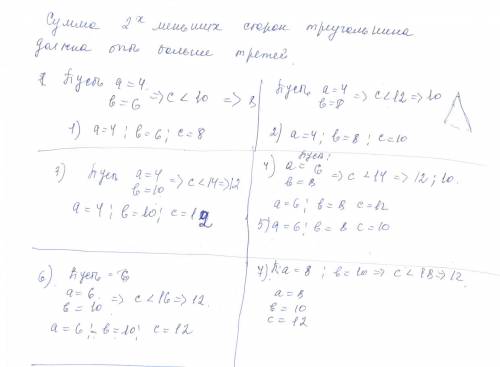 Сумма 2х меньших сторон треугольника
должна быть больше третей.
Пусть a=4. b=6 => c<10 => 8
1) a=4; b=6; c=8
Пусть a=4 b=8 => c<12 => 10
2) a=4; b=8; c=10
3) Пусть a=4 b=10 => c<14 => 12
a=4; b=10; c=12
4) Пусть: a=6 b=8 => c<14 => 12; 10.
a=6; b=8 c=12
5) a=6; b=8 c=10
6) Пусть = 6
a=6. b=10 => c<16 => 12.
a=6; b=10; c=12
7) a=8; b=10 => c<18 => 12
a=8
b=10
c=12